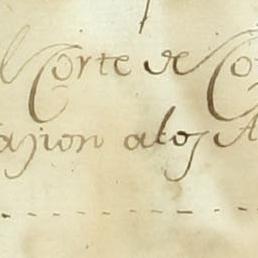 l Corte de Co
ajion alos A